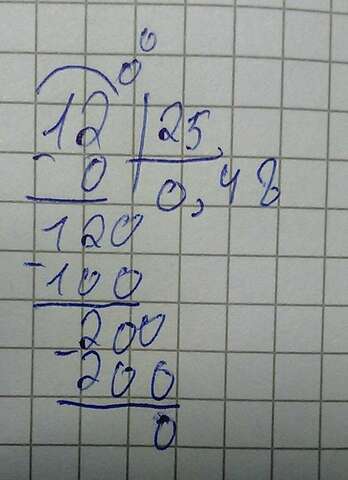 0
0
12 | 25
- 0 0,48
120
- 100
200
- 200
0